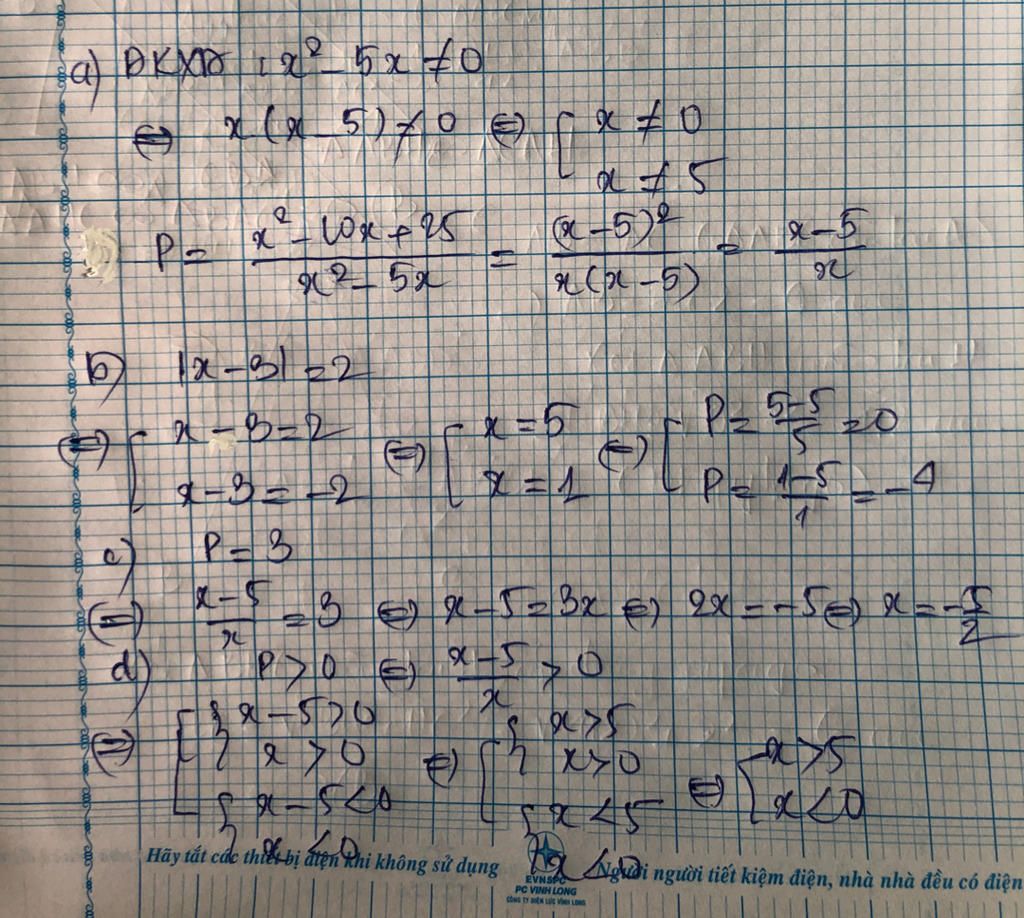 a) ĐKXĐ : x² - 5x ≠ 0
⇔ x(x - 5) ≠ 0 ⇔ [ x ≠ 0
x ≠ 5
P = (x² - 10x + 25)/(x² - 5x) = (x - 5)²/(x(x - 5)) = (x - 5)/x
b) |x - 3| = 2
⇔ [ x - 3 = 2 ⇔ [ x = 5 ⇔ [ P = (5-5)/5 = 0
x - 3 = -2 x = 1 P = (1-5)/1 = -4
c) P = 3
⇔ (x - 5)/x = 3 ⇔ x - 5 = 3x ⇔ 2x = -5 ⇔ x = -5/2
d) P > 0 ⇔ (x - 5)/x > 0
⇔ [ { x - 5 > 0 ⇔ [ { x > 5 ⇔ [ x > 5
x > 0 x > 0 x < 0
{ x - 5 < 0 { x < 5
x < 0 x < 0
Hãy tắt các thiết bị điện khi không sử dụng
EVNSPC
PC VINH LONG
CÔNG TY ĐIỆN LỰC VĨNH LONG
Người người tiết kiệm điện, nhà nhà đều có điện